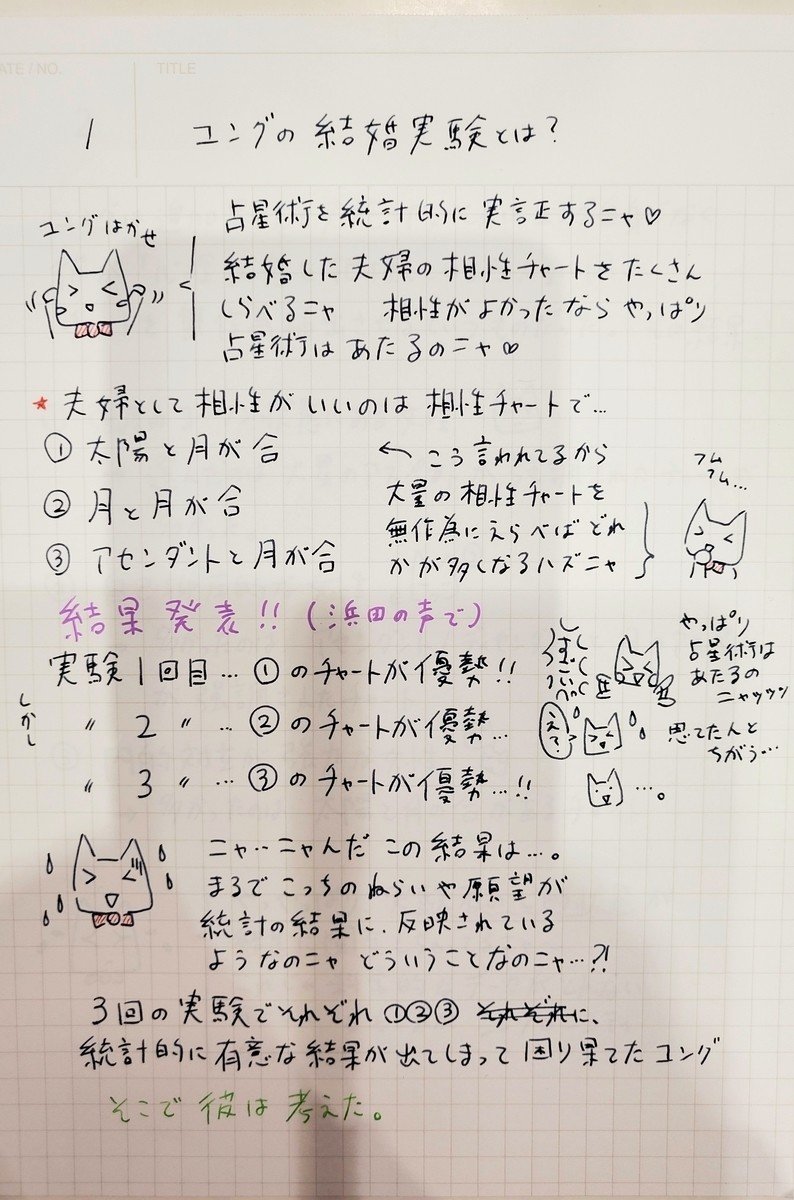 DATE / NO.
TITLE
1 ユングの結婚実験とは?
ユングはかせ
占星術を統計的に実証するニャ♡
結婚した夫婦の相性チャートをたくさん
しらべるニャ 相性がよかったなら やっぱり
占星術はあたるのニャ♡
★ 夫婦として相性がいいのは相性チャートで…
① 太陽と月が合
② 月と月が合
③ アセンダントと月が合
← こう言われてるから
大量の相性チャートを
無作為にえらべばどれ
かが多くなるハズニャ
フム
フム…
結果発表!!(浜田の声で)
実験1回目…①のチャートが優勢!!
やっぱり
占星術は
あたるの
ニャッッッ
しかし
〃 2 〃 …②のチャートが優勢…
え?
思てたんと
ちがう…
〃 3 〃 …③のチャートが優勢…!!
…。
ニャ‥ニャんだ この結果は…。
まるでこっちのねらいや願望が
統計の結果に、反映されている
ようなのニャ どういうことなのニャ…?!
3回の実験でそれぞれ①②③ それぞれに、
統計的に有意な結果が出てしまって困り果てたユング
そこで彼は考えた。